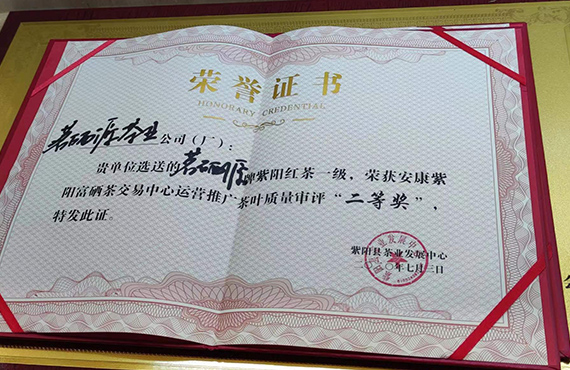 荣誉证书
HONORARY CREDENTIAL
茗硒源茶业公司（厂）：
贵单位选送的茗硒源牌紫阳红茶一级，荣获安康紫
阳富硒茶交易中心运营推广茶叶质量审评“二等奖”，
特发此证。
紫阳县茶业发展中心
二〇二〇年七月三日